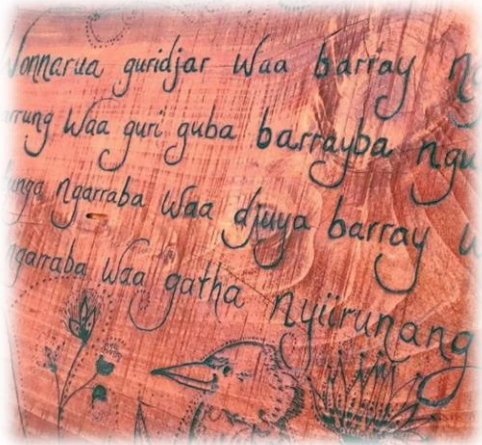 Wonnarua guridjar Waa barray
Waa guri guba barrayba
ngarraba Waa djuya barray
ngarraba Waa gatha nyiirunang